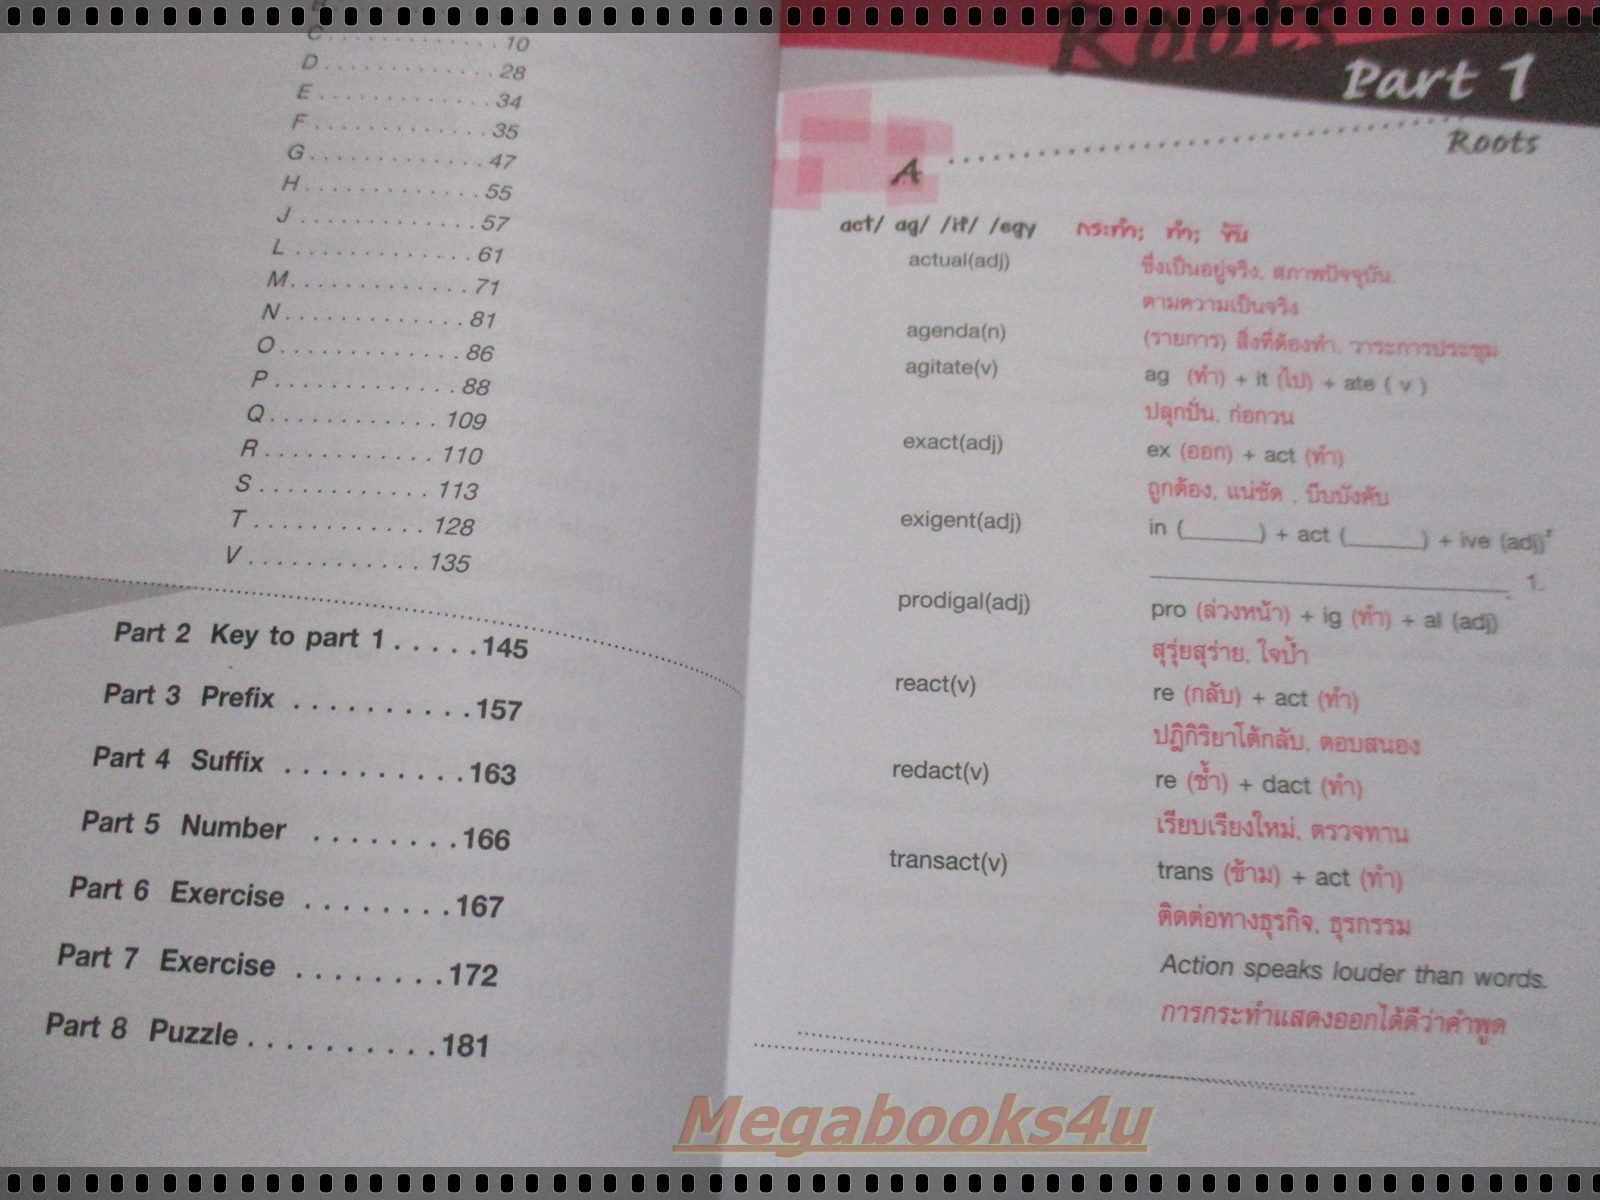 C . . . . . . . . . . . . . 10
D . . . . . . . . . . . . . 28
E . . . . . . . . . . . . . 34
F . . . . . . . . . . . . . 35
G . . . . . . . . . . . . . 47
H . . . . . . . . . . . . . 55
J . . . . . . . . . . . . . 57
L . . . . . . . . . . . . . 61
M . . . . . . . . . . . . . 71
N . . . . . . . . . . . . . 81
O . . . . . . . . . . . . . 86
P . . . . . . . . . . . . . 88
Q . . . . . . . . . . . . 109
R . . . . . . . . . . . . 110
S . . . . . . . . . . . . 113
T . . . . . . . . . . . . 128
V . . . . . . . . . . . . 135
Part 2 Key to part 1 . . . . . 145
Part 3 Prefix . . . . . . . . . . 157
Part 4 Suffix . . . . . . . . . . 163
Part 5 Number . . . . . . . . 166
Part 6 Exercise . . . . . . . . 167
Part 7 Exercise . . . . . . . . 172
Part 8 Puzzle . . . . . . . . . . 181
Roots
Part 1
Roots
A
act/ ag/ /it/ /egy กระทำ; ทำ; ขับ
actual(adj) ซึ่งเป็นอยู่จริง, สภาพปัจจุบัน,
ตามความเป็นจริง
agenda(n) (รายการ) สิ่งที่ต้องทำ, วาระการประชุม
agitate(v) ag (ทำ) + it (ไป) + ate ( v )
ปลุกปั่น, ก่อกวน
exact(adj) ex (ออก) + act (ทำ)
ถูกต้อง, แน่ชัด , บีบบังคับ
exigent(adj) in (______) + act (______) + ive (adj)
______________________ 1.
prodigal(adj) pro (ล่วงหน้า) + ig (ทำ) + al (adj)
สุรุ่ยสุร่าย, ใจป้ำ
react(v) re (กลับ) + act (ทำ)
ปฎิกิริยาโต้กลับ, ตอบสนอง
redact(v) re (ซ้ำ) + dact (ทำ)
เรียบเรียงใหม่, ตรวจทาน
transact(v) trans (ข้าม) + act (ทำ)
ติดต่อทางธุรกิจ, ธุรกรรม
Action speaks louder than words.
การกระทำแสดงออกได้ดีว่าคำพูด
Megabooks4u